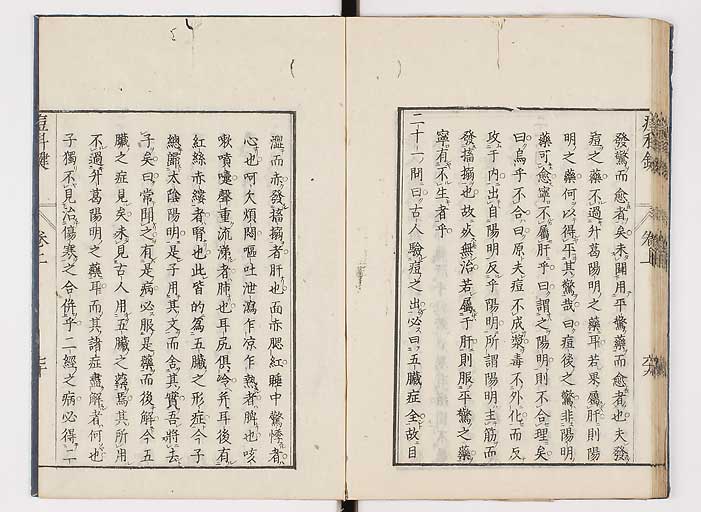 發驚而愈者矣未聞用平驚藥而愈者也夫發
痘之藥不過升葛陽明之藥耳若果屬肝則陽
明之藥何以得平其驚哉曰痘後之驚非陽明
藥可愈寧不屬肝乎曰謂之陽明則不合理矣
曰烏乎不合曰原夫痘不成漿毒不外化而反
攻于內出自陽明反乎陽明所謂陽明主筋而
發搐搦也故或無治若屬于肝則服平驚之藥
寧有不生者乎
二十一問曰古人驗痘之出必曰五臟症全故目
澀而赤發搐搦者肝也面赤腮紅睡中驚悸者
心也呵欠煩悶嘔吐泄瀉乍凉乍熱者脾也咳
嗽噴嚏聲重流涕者肺也耳尻俱冷并耳後有
紅絲赤縷者腎也此皆的爲五臟之形症今子
總歸太陰陽明是子用其文而舍其實吾將去
子矣曰常聞之有是病必服是藥而後解今五
臟之症見矣未見古人用五臟之藥焉其所用
不過升葛陽明之藥耳而其諸症盡解者何也
子獨不見治傷寒之合併乎二經之病必得二
痘科鍵
卷上